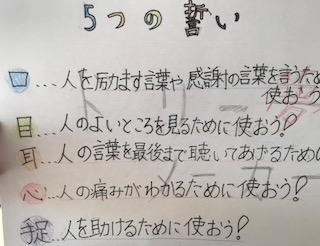 5つの誓い
口…人を励ます言葉や感謝の言葉を言うため
使おう
目…人のよいところを見るために使おう!
耳…人の言葉を最後まで聴いてあげるために
心…人の痛みがわかるために使おう!
捉 人を助けるために使おう!